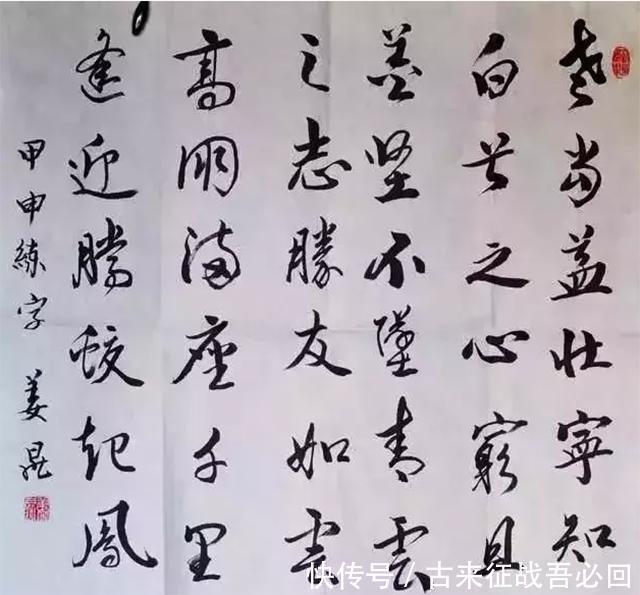 老当益壮寧知
白首之心窮且
益坚不墜青雲
之志勝友如雲
高朋满座千里
逢迎騰蛟起鳳
甲申練字 姜昆
快传号/古来征战吾必回